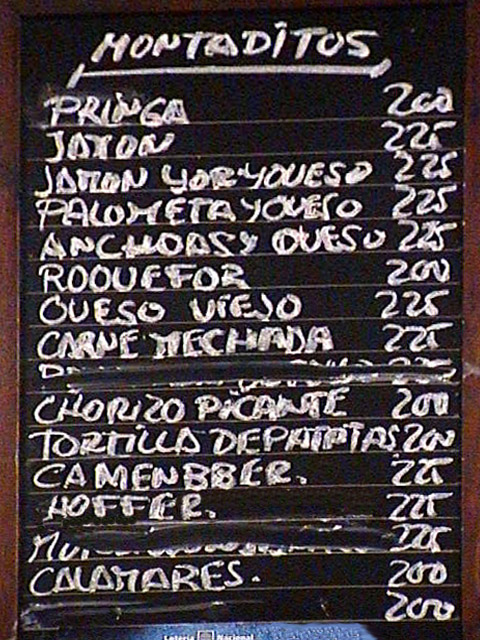 MONTADITOS
PRINGA 200
JAMON 225
JAMON YOR-YQUESO 225
PALOMETA Y QUESO 225
ANCHOAS Y QUESO 225
ROQUEFOR 200
QUESO VIEJO 225
CARNE MECHADA 225
225
CHORIZO PICANTE 200
TORTILLA DE PATATAS 200
CAMENBBER. 225
HOFFER. 225
225
CALAMARES. 200
200
Lotería Nacional